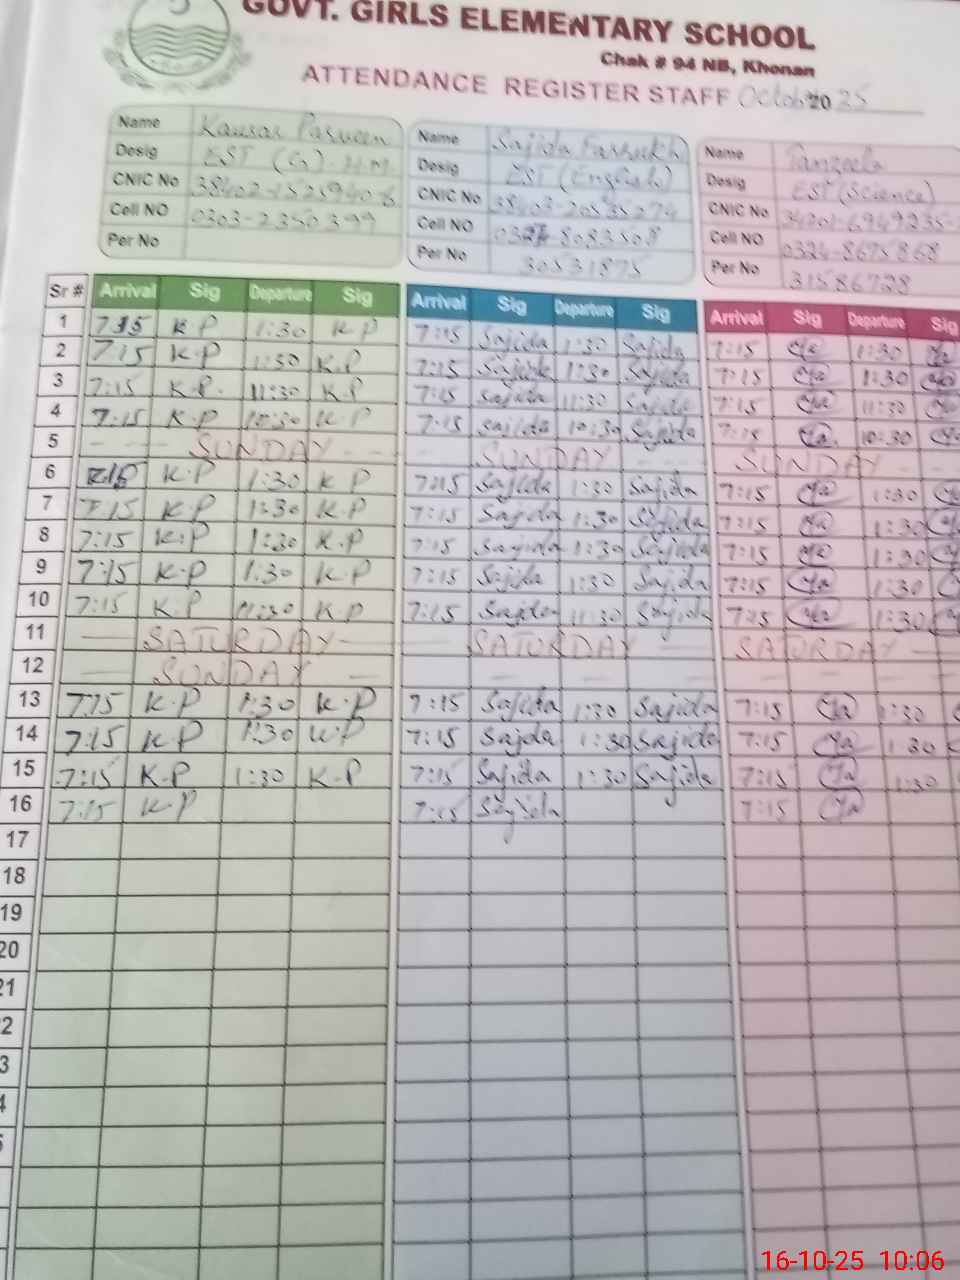 GOVT. GIRLS ELEMENTARY SCHOOL
Chak # 94 NB, Khonan
ATTENDANCE REGISTER STAFF October 2025
Name Kausar Parveen
Desig EST ( ). H.M
CNIC No
Cell NO 0303-2350399
Per No
Name Sajida Farrukh
Desig EST (English)
CNIC No
Cell NO 8083508
Per No 30531875
Name Tanzeela
Desig EST (Science)
CNIC No
Cell NO 0324-8675868
Per No 31586728
Sr # Arrival Sig Departure Sig Arrival Sig Departure Sig Arrival Sig Departure Sig
1 7:15 K P 1:30 K P 7:15 Sajida 1:30 Sajida 7:15 1:30
2 7:15 K.P 1:30 K.P 7:15 Sajida 1:30 Sajida 7:15 1:30
3 7:15 K.P. 11:30 K.P 7:15 Sajida 11:30 Sajida 7:15 11:30
4 7:15 K.P 10:30 K.P 7:15 Sajida 10:30 Sajida 7:15 10:30
5 SUNDAY SUNDAY SUNDAY
6 K.P 1:30 K P 7:15 Sajida 1:30 Sajida 7:15 1:30
7 7:15 K.P 1:30 K.P 7:15 Sajida 1:30 Sajida 7:15 1:30
8 7:15 K.P 1:30 K.P 7:15 Sajida 1:30 Sajida 7:15 1:30
9 7:15 K.P 1:30 K.P 7:15 Sajida 1:30 Sajida 7:15 1:30
10 7:15 K.P 11:30 K.P 7:15 Sajida 11:30 Sajida 7:15 11:30
11 SATURDAY SATURDAY SATURDAY
12 SUNDAY
13 7:15 K.P 1:30 K.P 7:15 Sajida 1:30 Sajida 7:15 1:30
14 7:15 K.P 1:30 K.P 7:15 Sajda 1:30 Sajida 7:15 1:30
15 7:15 K.P 1:30 K.P 7:15 Sajida 1:30 Sajida 7:15 1:30
16 7:15 K.P 7:15 Sajida 7:15
17
18
19
20
21
2
3
4
5
16-10-25 10:06